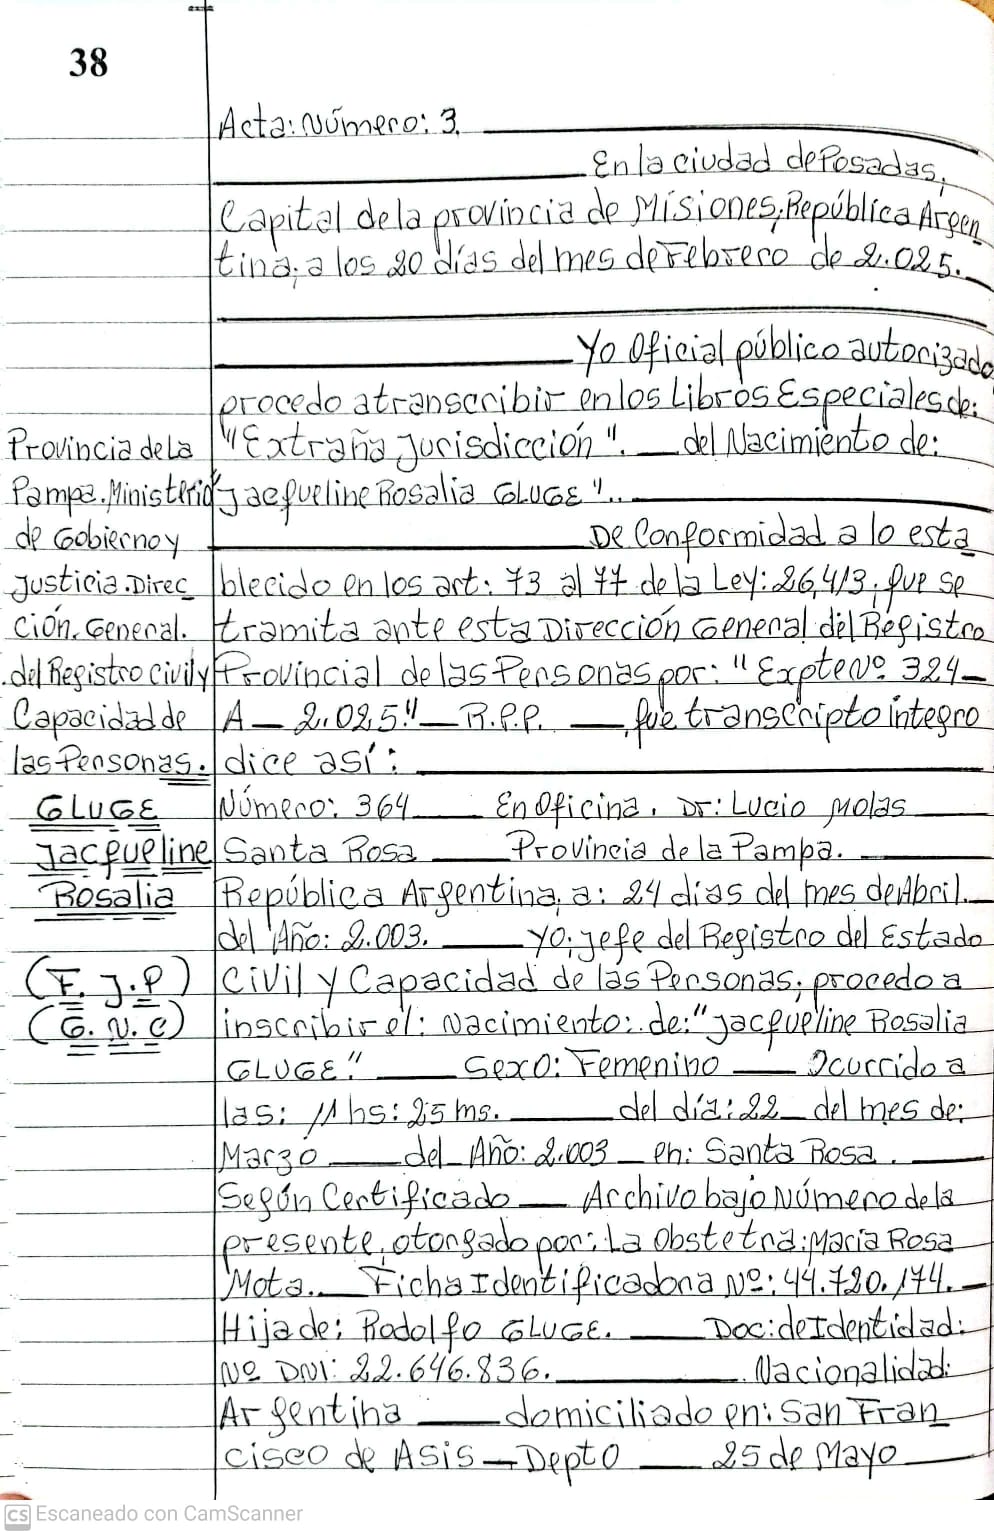 38
Acta: Número: 3.
En la ciudad de Posadas,
Capital de la provincia de Misiones; República Argen
tina, a los 20 días del mes de Febrero de 2.025.
Yo Oficial público autorizado
procedo a transcribir en los Libros Especiales de:
"Extraña Jurisdicción". del Nacimiento de:
"Jacqueline Rosalia GLUGE"..
De Conformidad a lo esta
blecido en los art: 73 al 77 de la Ley: 26,413; que se
tramita ante esta Dirección General del Registro
Provincial de las Personas por: "Expte Nº 324-
A - 2.025" - R.P.P. , que transcripto íntegro
dice así:
Provincia de la
Pampa. Ministerio
de Gobierno y
Justicia. Direc
ción. General.
del Registro Civil y
Capacidad de
las Personas.
GLUGE
Jacqueline
Rosalia
(F. J. P)
(G. N. C)
Número: 364 En Oficina. Dr: Lucio Molas
Santa Rosa Provincia de la Pampa.
República Argentina, a: 24 días del mes de Abril.
del Año: 2.003. Yo; Jefe del Registro del Estado
Civil y Capacidad de las Personas; procedo a
inscribir el: Nacimiento: de: "Jacqueline Rosalia
GLUGE" Sexo: Femenino Ocurrido a
las: 11 hs: 25 ms. del día: 22 del mes de:
Marzo del Año: 2.003 en: Santa Rosa.
Según Certificado Archivo bajo Número de la
presente, otorgado por: La Obstetra; María Rosa
Mota. Ficha Identificadora Nº: 44.720.174.
Hija de: Rodolfo GLUGE. Doc: de Identidad:
Nº DNI: 22.646.836. Nacionalidad:
Argentina domiciliado en: San Fran
cisco de Asis - Depto 25 de Mayo
CS Escaneado con CamScanner